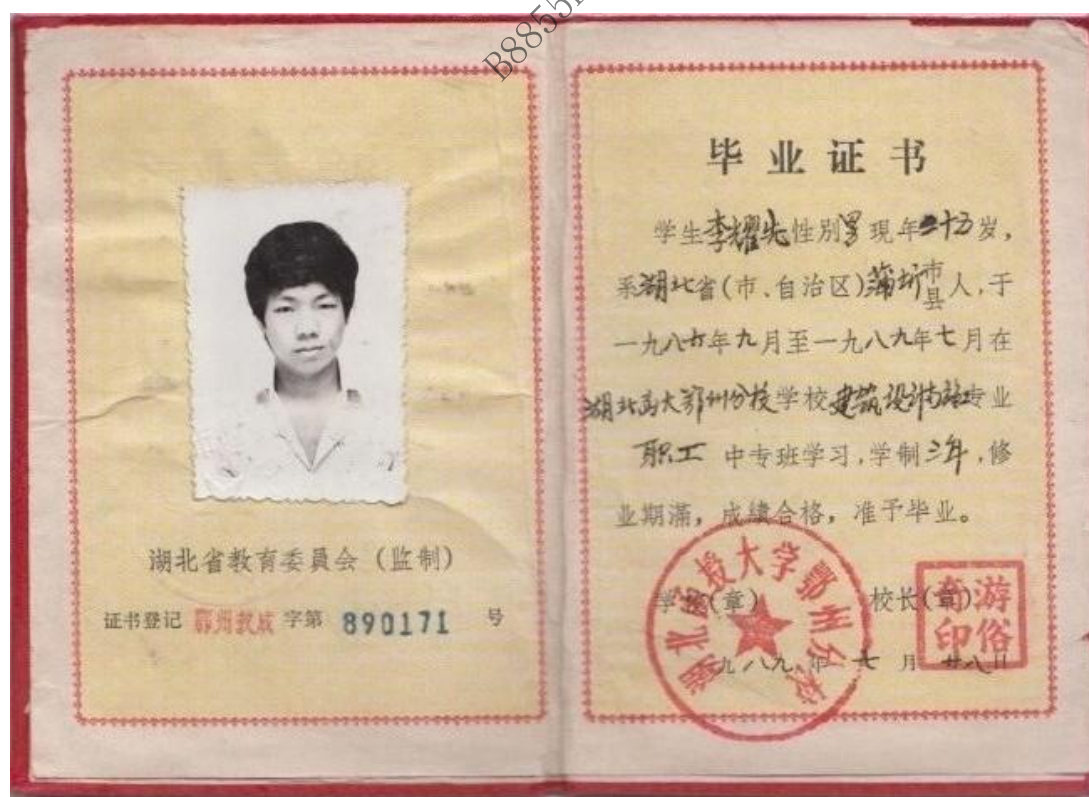 B8855
湖北省教育委員会（监制）
证书登记 鄂州教成 字第 890171 号
毕业证书
学生李耀先性别男现年二十五岁，
系湖北省(市、自治区)蒲圻市县人，于
一九八六年九月至一九八九年七月在
湖北函大鄂州分校学校建筑设计与施工专业
职工 中专班学习，学制三年，修
业期满，成绩合格，准予毕业。
学校(章) 校长(章)
一九八九年七月廿八日
湖北函授大学鄂州分校
游俗
印